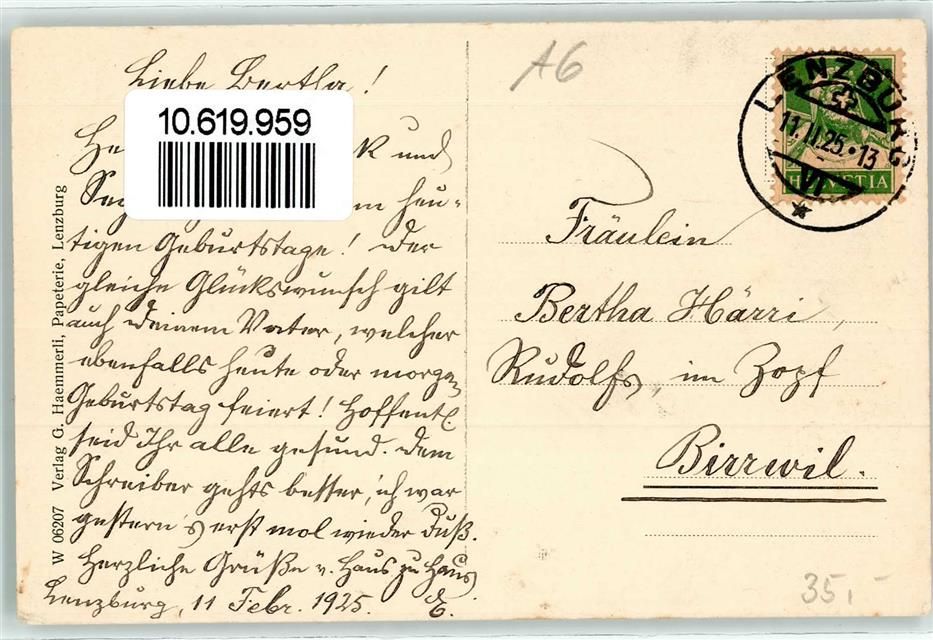 Liebe Bertha!
10.619.959
k und
Seg m heu-
tigen Geburtstage! Der
gleiche Glückswunsch gilt
auch Deinem Vater, welcher
ebenfalls heute oder morgen
Geburtstag feiert! Hoffentl.
seid Ihr alle gesund. Dem
Schreiber gehts besser, ich war
gestern erst mal wieder
Herzliche Grüße v. Haus zu Haus
Lenzburg, 11 Febr. 1925.
W 06207 Verlag G. Haemmerli, Papeterie, Lenzburg
A6
LENZBURG
11.II.25.-13
VI
HELVETIA
Fräulein
Bertha Härri,
Rudolfs, im Zopf
Birrwil.
35,-